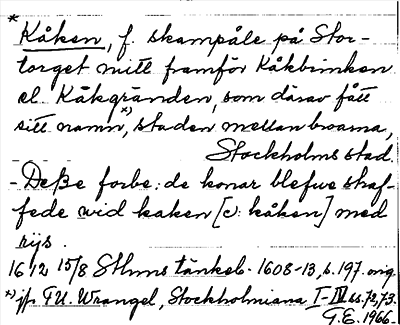 * Kåken, f. skampåle på Stor-
torget mitt framför Kåkbrinken
el. Kåkgränden, som därav fått
sitt namn,*) staden mellan broarna,
Stockholms stad.
- Deße forbe: de konor blefwe straf-
fede wid kaken [ɔ: kåken] med
rijs.
1612 15/8 Sthms tänkeb. 1608-13, s. 197. orig.
*) jfr F.U. Wrangel, Stockholmiana I-IV ss. 72, 73.
G.E. 1966.-